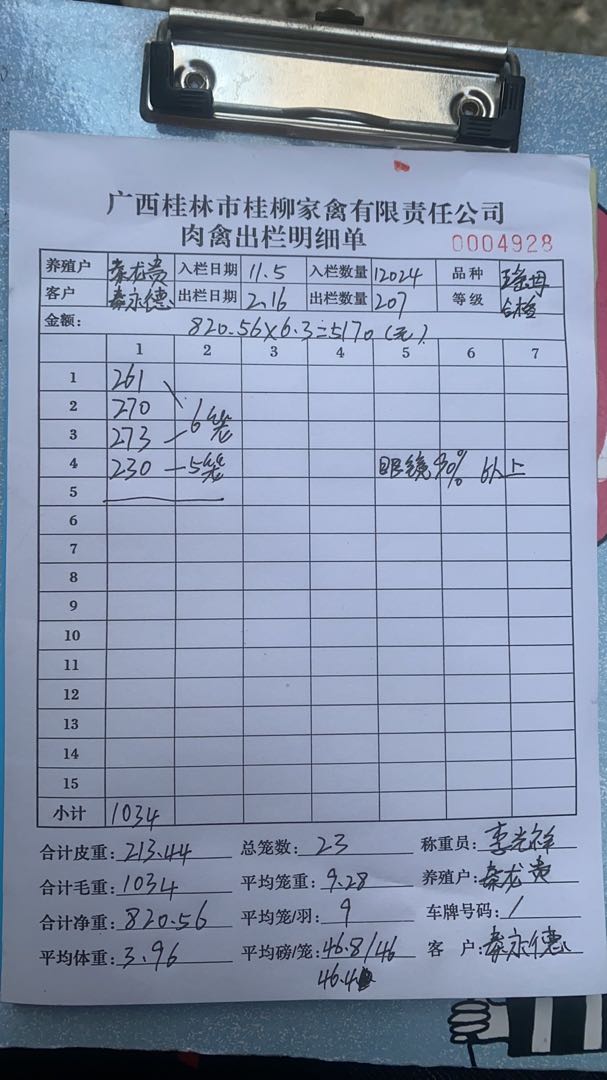 广西桂林市桂柳家禽有限责任公司
肉禽出栏明细单 0004928
养殖户 秦龙贵 入栏日期 11.5 入栏数量 12024 品种 瑶母
客户 秦永德 出栏日期 2.16 出栏数量 207 等级 合格
金额: 820.56×6.3=5170(元)
1 2 3 4 5 6 7
1 261
2 270
3 273 6笼
4 230 5笼 眼镜90% 以上
5
6
7
8
9
10
11
12
13
14
15
小计 1034
合计皮重: 213.44 总笼数: 23 称重员: 李光祥
合计毛重: 1034 平均笼重: 9.28 养殖户: 秦龙贵
合计净重: 820.56 平均笼/羽: 9 车牌号码: /
平均体重: 3.96 平均磅/笼: 46.8/46 客 户: 秦永德
46.4